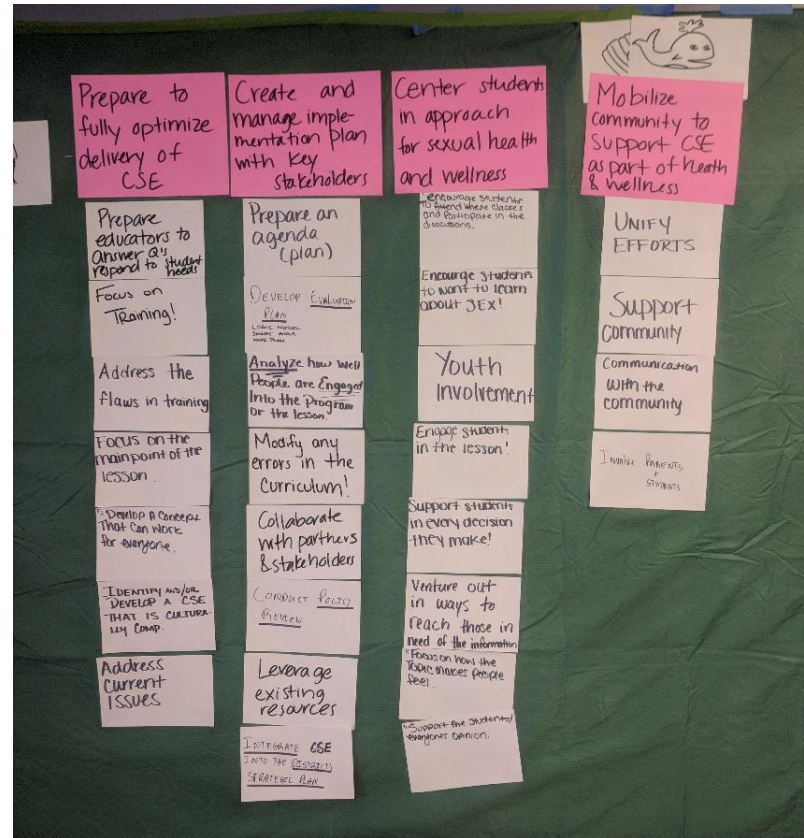 Prepare to
fully optimize
delivery of
CSE
Prepare
educators to
answer Q's
respond to student
needs
Focus on
Training!
Address the
flaws in training
Focus on the
main point of the
lesson.
Develop A Concept
That Can Work
for everyone.
IDENTIFY AND/OR
DEVELOP A CSE
THAT IS CULTURA-
LLY COMP.
Address
Current
Issues
Create and
manage imple-
mentation plan
with key
stakeholders
Prepare an
agenda
(plan)
DEVELOP EVALUATION
PLAN
LOGIC MODEL
SMART GOALS
WORK PLAN
Analyze how well
People are Engaged
Into the Program
or the lesson.
Modify any
errors in the
Curriculum!
Collaborate
with partners
& stakeholders
CONDUCT POLICY
REVIEW
Leverage
existing
resources
INTEGRATE CSE
INTO THE DISTRICT'S
STRATEGIC PLAN
Center students
in approach
for sexual health
and wellness
encourage students
to attend these classes
and participate in the
discussions.
Encourage students
to want to learn
about SEX!
Youth
Involvement
Engage students
in the lesson!
Support students
in every decision
they make!
Venture out
in ways to
reach those in
need of the information
Focus on how the
Topic makes people
feel.
Support the students/
everyones opinion.
Mobilize
community to
support CSE
as part of health
& wellness
UNIFY
EFFORTS
Support
Community
Communication
with the
community
INVOLVE PARENTS
+
STUDENTS